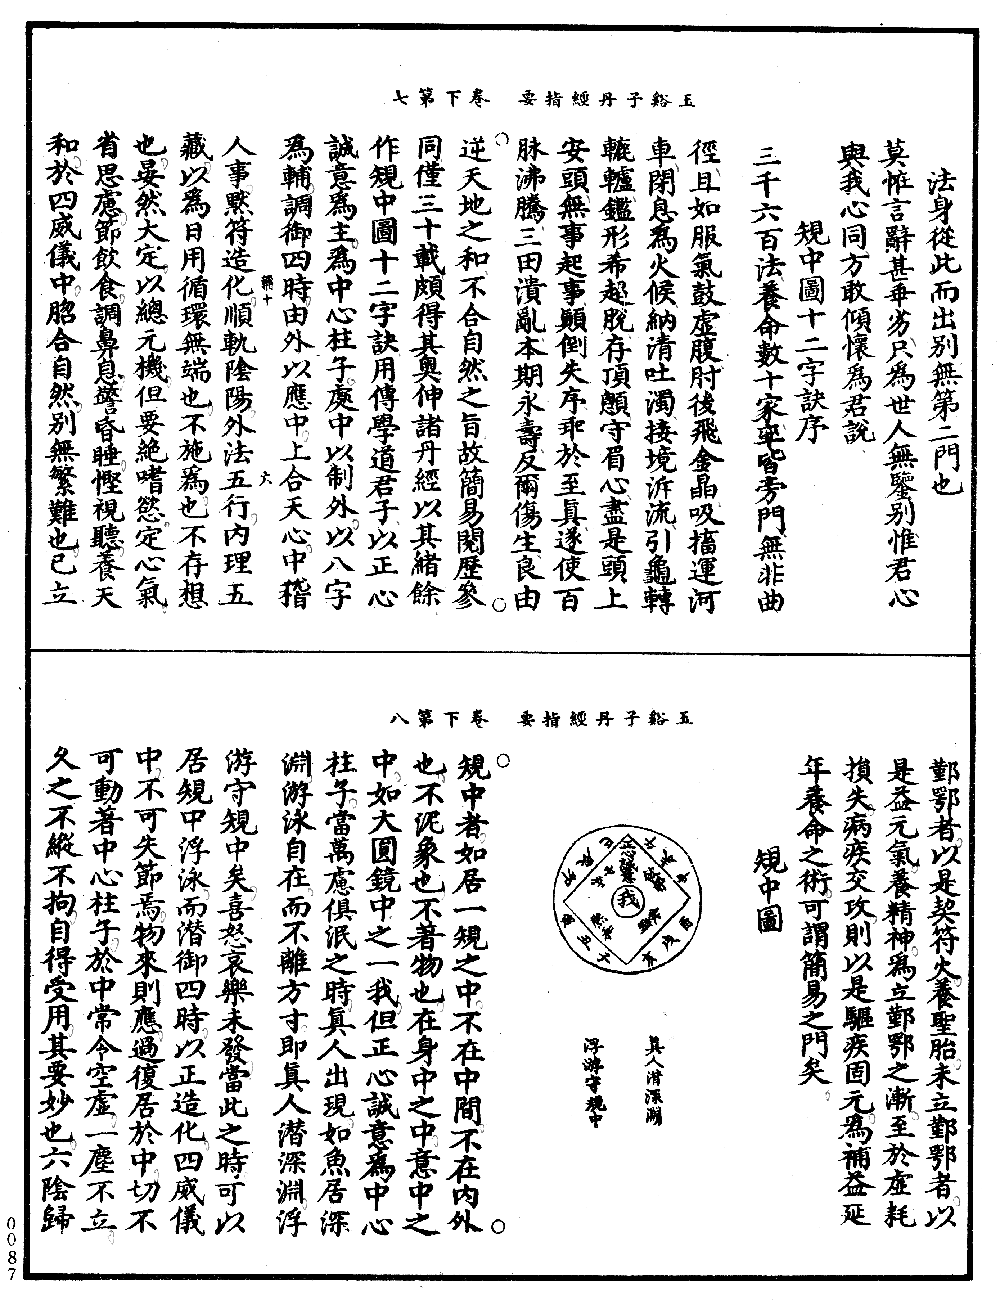 玉谿子丹經指要　卷下第七
法身從此而出別無第二門也
莫惟言辭甚垂劣只為世人無鑒別惟君心
與我心同方敢傾懷為君說
規中圖十二字訣序
三千六百法養命數十家率皆旁門無非曲
徑且如服氣鼓虛腹肘後飛金晶吸搐運河
車閉息為火候納清吐濁接境泝流引龜轉
轆轤鑑形希超脫存頂顖守眉心盡是頭上
安頭無事起事顛倒失序乖於至真遂使百
脉沸騰三田潰亂本期永壽反爾傷生良由
逆天地之和不合自然之旨故簡易閱歷參
同僅三十載頗得其奧伸諸丹經以其緒餘
作規中圖十二字訣用傳學道君子以正心
誠意為主為中心柱子處中以制外以八字
為輔調御四時由外以應中上合天心中稽
人事默符造化順軌陰陽外法五行內理五
藏以為日用循環無端也不施為也不存想
也晏然大定以總元機但要絕嗜慾定心氣
省思慮節飲食調鼻息警昏睡慳視聽養天
和於四威儀中脗合自然別無繁難也已立
玉谿子丹經指要　卷下第八
鄞鄂者以是契符火養聖胎未立鄞鄂者以
是益元氣養精神為立鄞鄂之漸至於虛耗
損失病疾交攻則以是驅疾固元為補益延
年養命之術可謂簡易之門矣
規中圖
我
真人潛深淵
浮游守規中
規中者如居一規之中不在中間不在內外
也不泥象也不著物也在身中之中意中之
中如大圓鏡中之一我但正心誠意為中心
柱子當萬慮俱泯之時真人出現如魚居深
淵游泳自在而不離方寸即真人潛深淵浮
游守規中矣喜怒哀樂未發當此之時可以
居規中浮泳而潛御四時以正造化四威儀
中不可失節焉物來則應過復居於中切不
可動著中心柱子於中常令空虛一塵不立
久之不縱不拘自得受用其要妙也六陰歸
0087